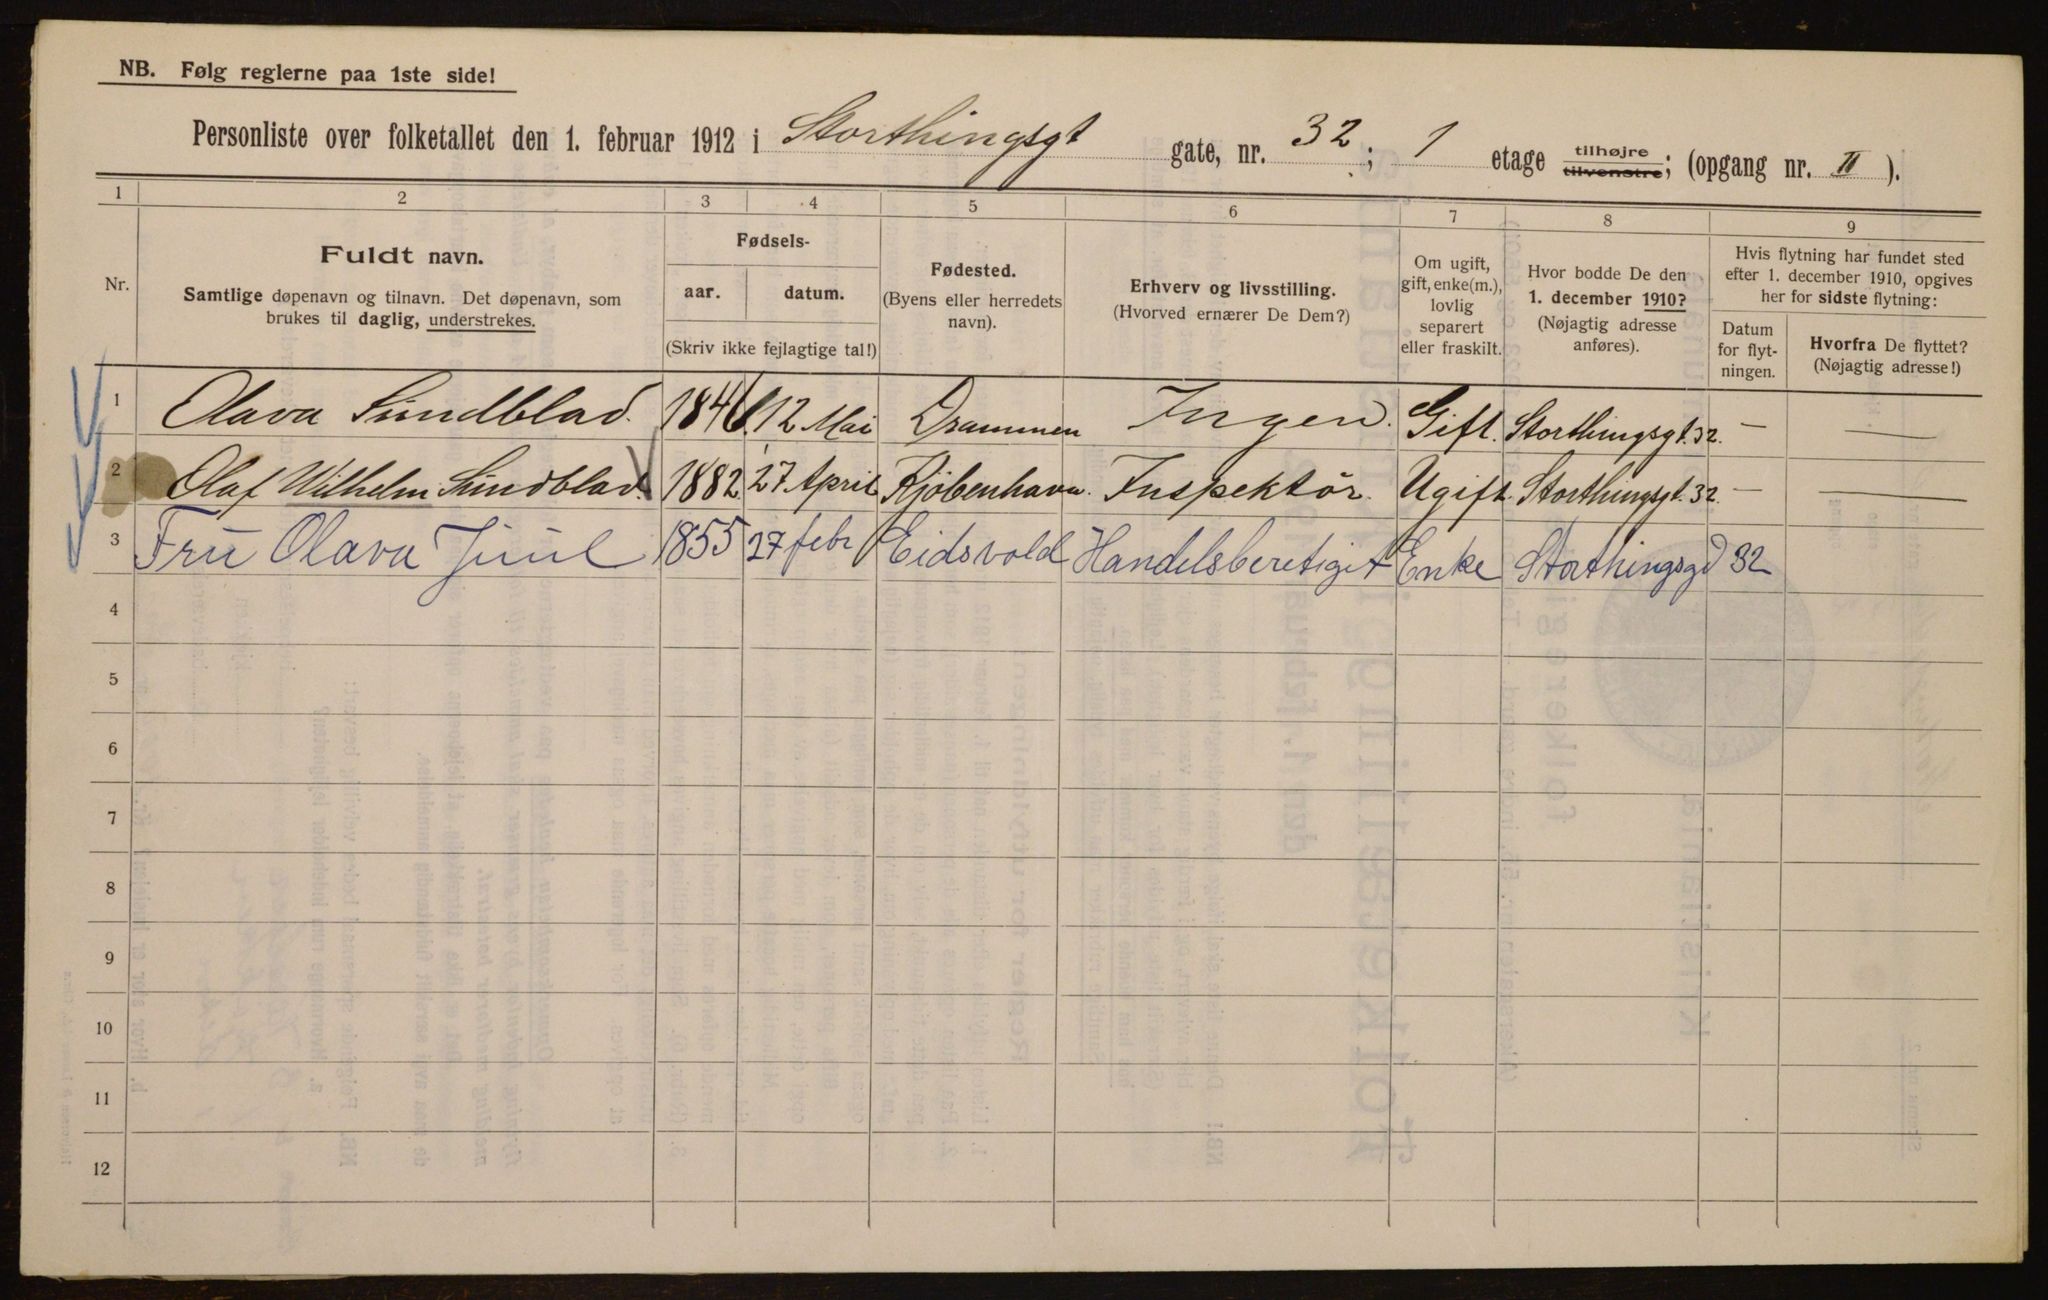 NB. Følg reglerne paa 1ste side!
Personliste over folketallet den 1. februar 1912 i Storthingsgt gate, nr. 32; 1 etage tilhøjre tilvenstre; (opgang nr. II ).
1 2 3 4 5 6 7 8 9
Nr.
Fuldt navn.
Samtlige døpenavn og tilnavn. Det døpenavn, som
brukes til daglig, understrekes.
Fødsels-
aar. datum.
(Skriv ikke fejlagtige tal!)
Fødested.
(Byens eller herredets
navn).
Erhverv og livsstilling.
(Hvorved ernærer De Dem?)
Om ugift,
gift, enke(m.),
lovlig
separert
eller fraskilt.
Hvor bodde De den
1. december 1910?
(Nøjagtig adresse
anføres).
Hvis flytning har fundet sted
efter 1. december 1910, opgives
her for sidste flytning:
Datum
for flyt-
ningen.
Hvorfra De flyttet?
(Nøjagtig adresse!)
1 Olava Sundblad. 1846. 12 Mai Drammen Ingen. Gift. Storthingsgt. 32. — —
2 Olaf Wilhelm Sundblad. 1882 27 April Kjöbenhavn. Inspektör. Ugift. Storthingsgt. 32. — —
3 Fru Olava Juul 1855 27 febr Eidsvold Handelsberetiget Enke Storthingsgd 32
4
5
6
7
8
9
10
11
12